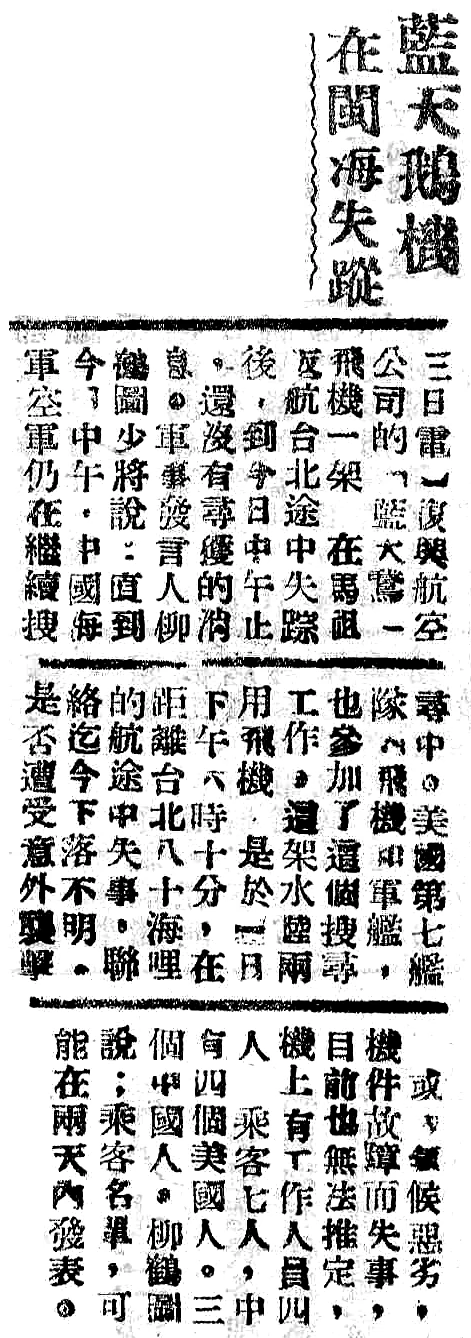 藍天鵝機
在閩海失蹤
三日電】復興航空
公司的「藍天鵞」
飛機一架 在馬祖
返航台北途中失踪
後，到今日中午止
。還沒有尋獲的消
息。軍事發言人柳
鶴圖少將說：直到
今日中午，中國海
軍空軍仍在繼續搜
尋中。美國第七艦
隊 飛機和軍艦，
也參加了這個搜尋
工作。這架水陸兩
用飛機 是於 日
下午六時十分，在
距離台北八十海哩
的航途中失事。聯
絡迄今下落不明。
是否遭受意外襲擊
或 氣候惡劣，
機件故障而失事，
目前也無法推定，
機上有工作人員四
人 乘客七人，中
有四個美國人。三
個中國人。柳鶴圖
說；乘客名單，可
能在兩天內發表。